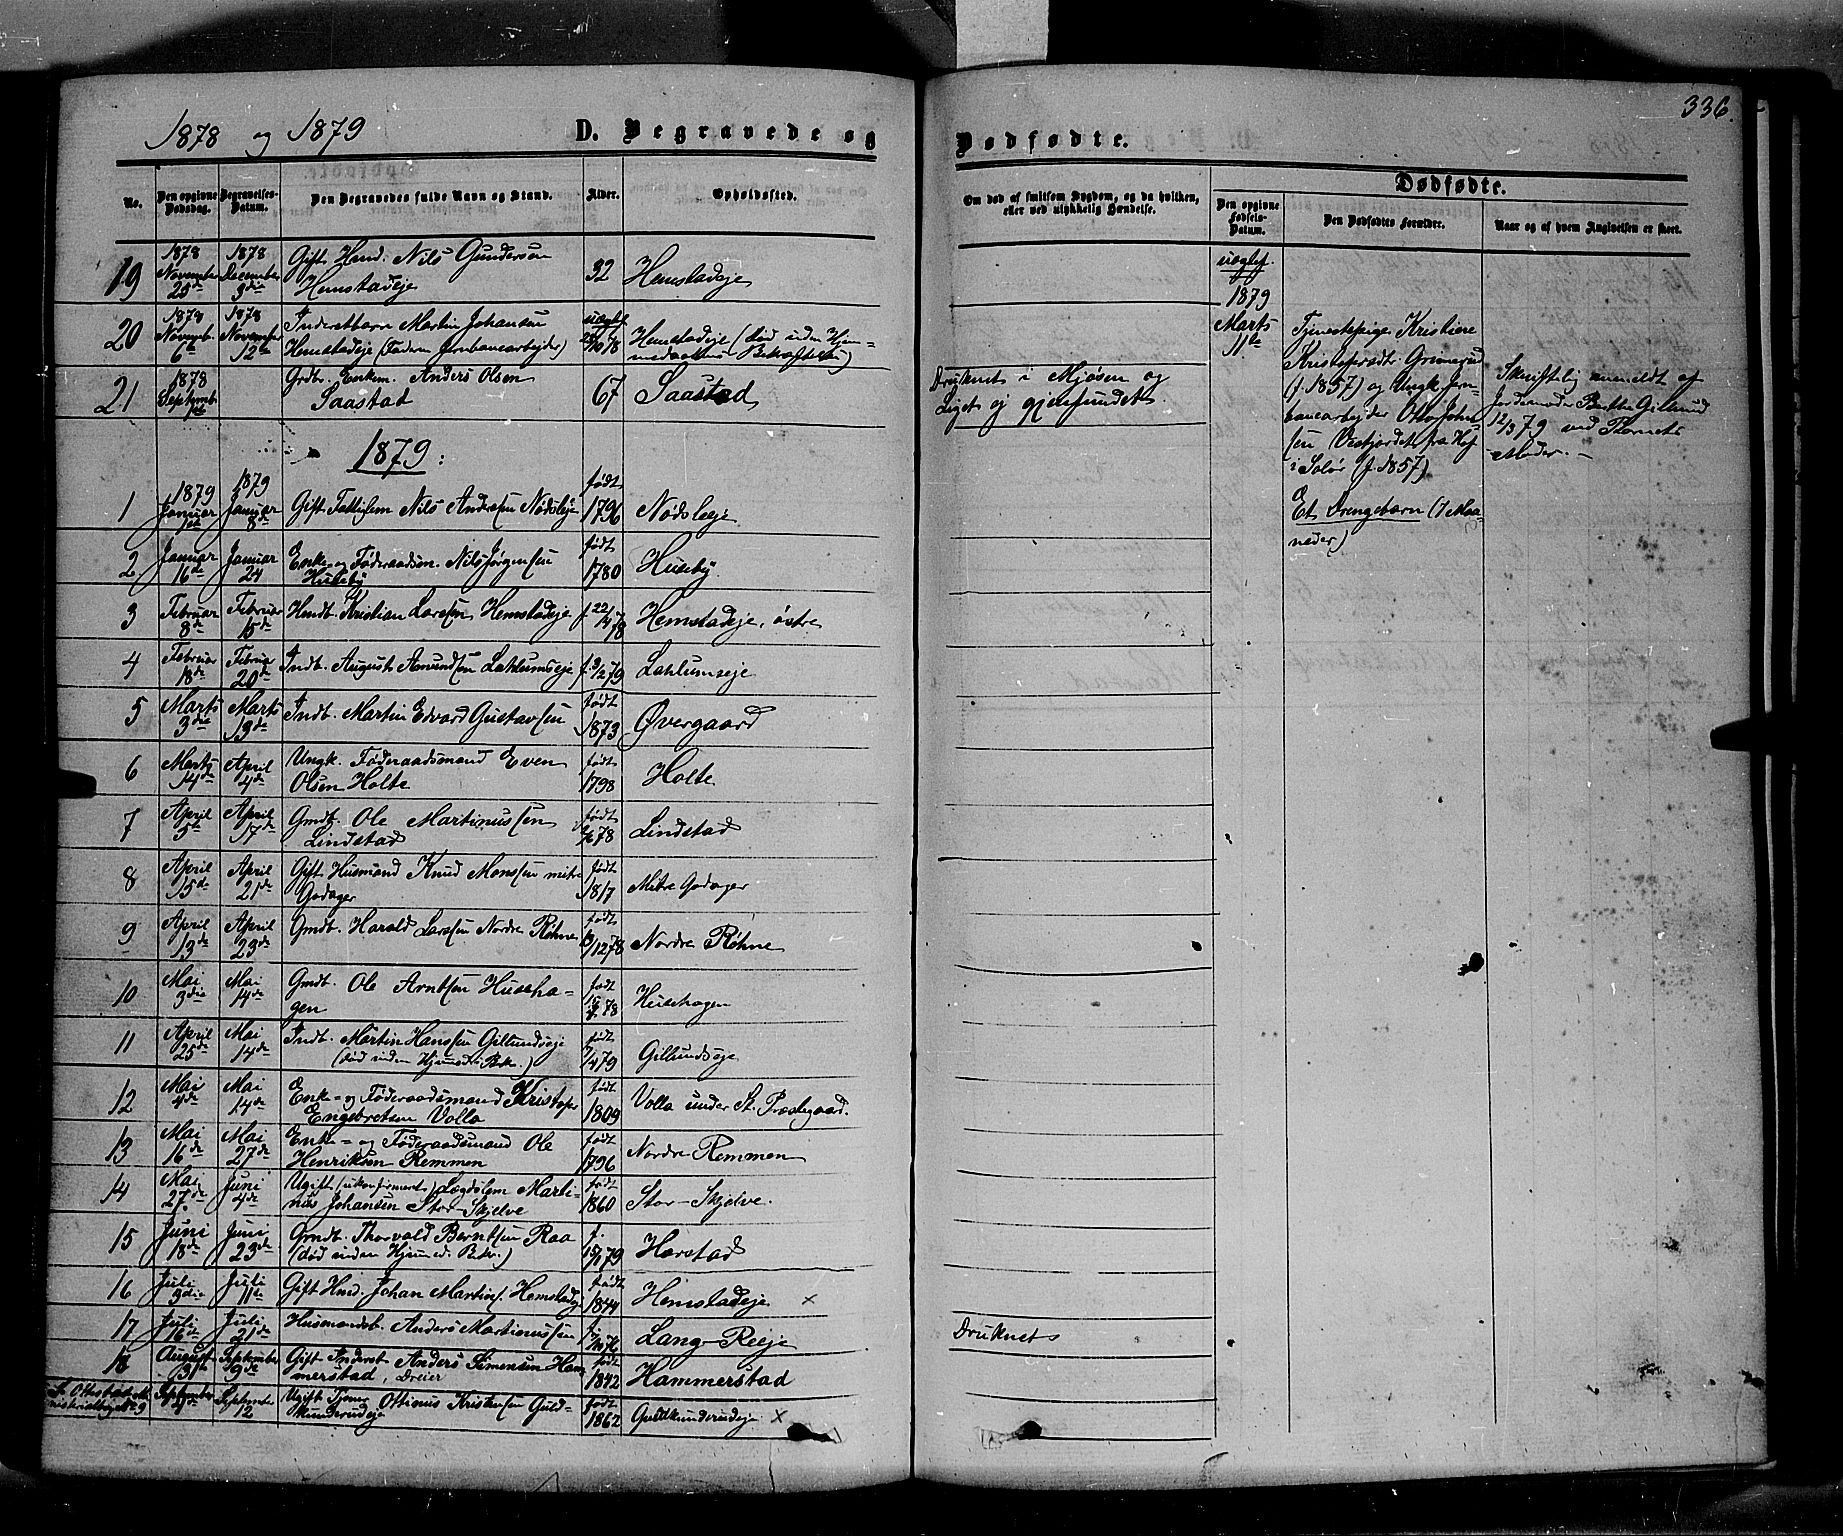 1878 og 1879
D. Begravede og
Dødfødte.
336.
No.
Den opgivne Dødsdag.
Begravelses-Datum.
Den Begravedes fulde Navn og Stand.
Alder.
Opholdssted.
Om død af smitsom Sygdom, og da hvilken,
eller ved ulykkelig Hændelse.
Dødfødte.
Den opgivne Fødsels-Datum.
Den Dødfødtes Forældre.
Naar og af hvem Angivelsen er skeet.
19 1878 November 25de 1878 December 3die Gift Hmd. Nils Gundersen
Hemstadeje 32 Hemstadeje
20 1878 Novemb. 6te 1878 November 12te Inderstbarn Martin Johansen
Hemstadeje (Faderen Jernbanearbejder) uægte 10/78 Hemstadeje (død uden Hjem-
medaabens Bekræftelse)
21 1878 Septemb. Grdbr. Enkem. Anders Olsen
Saastad 67 Saastad
Druknet i Mjøsen og
Liget ej gjenfundet.
1879:
1 1879 Januar 1ste 1879 Januar 8de Gift Fattiglem Nils Andersen Nødsleje født 1796 Nødsleje
2 Januar 16de Januar 24 Enke- og Føderaadsm. Nils Jørgensen
Huseby født 1780 Huseby
3 Februar 8de Februar 15de Hmdb. Kristian Larsen Hemstadeje f. 22/4 78 Hemstadeje, østre
4 Februar 18de Februar 20de Indb. August Amundsen Lahlumseje f. 3/2 79 Lahlumseje
5 Marts 3die Marts 13de Indb. Martin Edvard Gustavsen født 1873 Øvergaard
6 Marts 14de April 4de Ungk. Føderaadsmand Even
Olsen Holte født 1798 Holte
7 April 5te April 17de Gmdb. Ole Martinussen
Lindstad født 78 Lindstad
8 April 15de April 21de Gift Husmand Knud Monssen mitre
Godager født 1817 Mitre Godager
9 April 13de April 23de Gmdb. Harald Larssen Nordre Røhne født 12 78 Nordre Røhne
10 Mai 3die Mai 14de Gmdb. Ole Arntsen Huseha-
gen født 78 Husehagen
11 April 25de Mai 14de Indb. Martin Hanssen Gillundseje
(død uden Hjemmed. Bek.) født 4 79 Gillundseje
12 Mai 4de Mai 14de Enke- og Føderaadsmand Kristofer
Engebretsen Volla født 1809 Volla under St. Præstegaard.
13 Mai 16de Mai 27de Enke- og Føderaadsmand Ole
Henriksen Remmen født 1796 Nordre Remmen
14 Mai 27de Juni 4de Ugift (ukonfirmert) Lægdslem Marti-
nus Johansen Stor-Skjelve født 1860 Stor-Skjelve.
15 Juni 18de Juni 23de Grmdb. Thorvald Berntsen Raa
(død uden Hjemmed. Bek.) f. 15/1 79 Harstad
16 Juli 3die Juli 11te Gift Hmd. Johan Martins. Hemstadeje født 1844 Hemstadeje ×
17 Juli 16de Juli 21de Husmandsb. Anders Martinussen Lang-Reeje
Druknet
18 August 31te September 9de Gift Inderst Anders Simensen Ham-
merstad, Dreier født 1842 Hammerstad
September September 12 Ugift Tjener Ottinus Kristensen Guld-
kunderudeje født 1862 Guldkunderudeje ×
uægte
1879
Marts 11te
Tjenestepige Kristiane
Kristofersdt. Grimerud
(f. 1857) og Ungk. Jern-
banearbejder Otto John-
sen Vesfjordet fra Hof
i Solør (f. 1857)
Et Drengebarn (7 Maa-
neder)
Skriftelig anmeldt af
Jordemoder Berthe Gillund
12/3 79 ved Barnets
Moder. -